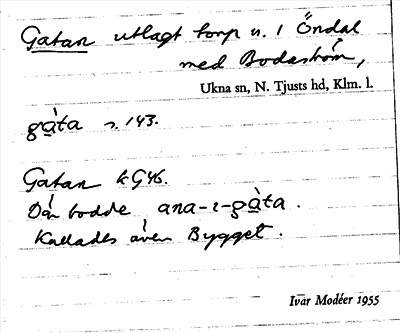 Gatan utlagt torp u. 1 Öndal
med Bodaström,
Ukna sn, N. Tjusts hd, Klm. l.
gàta s. 143.
Gatan k G46.
Dår bodde ana-i-gàta.
Kallades även Bygget.
Ivar Modéer 1955